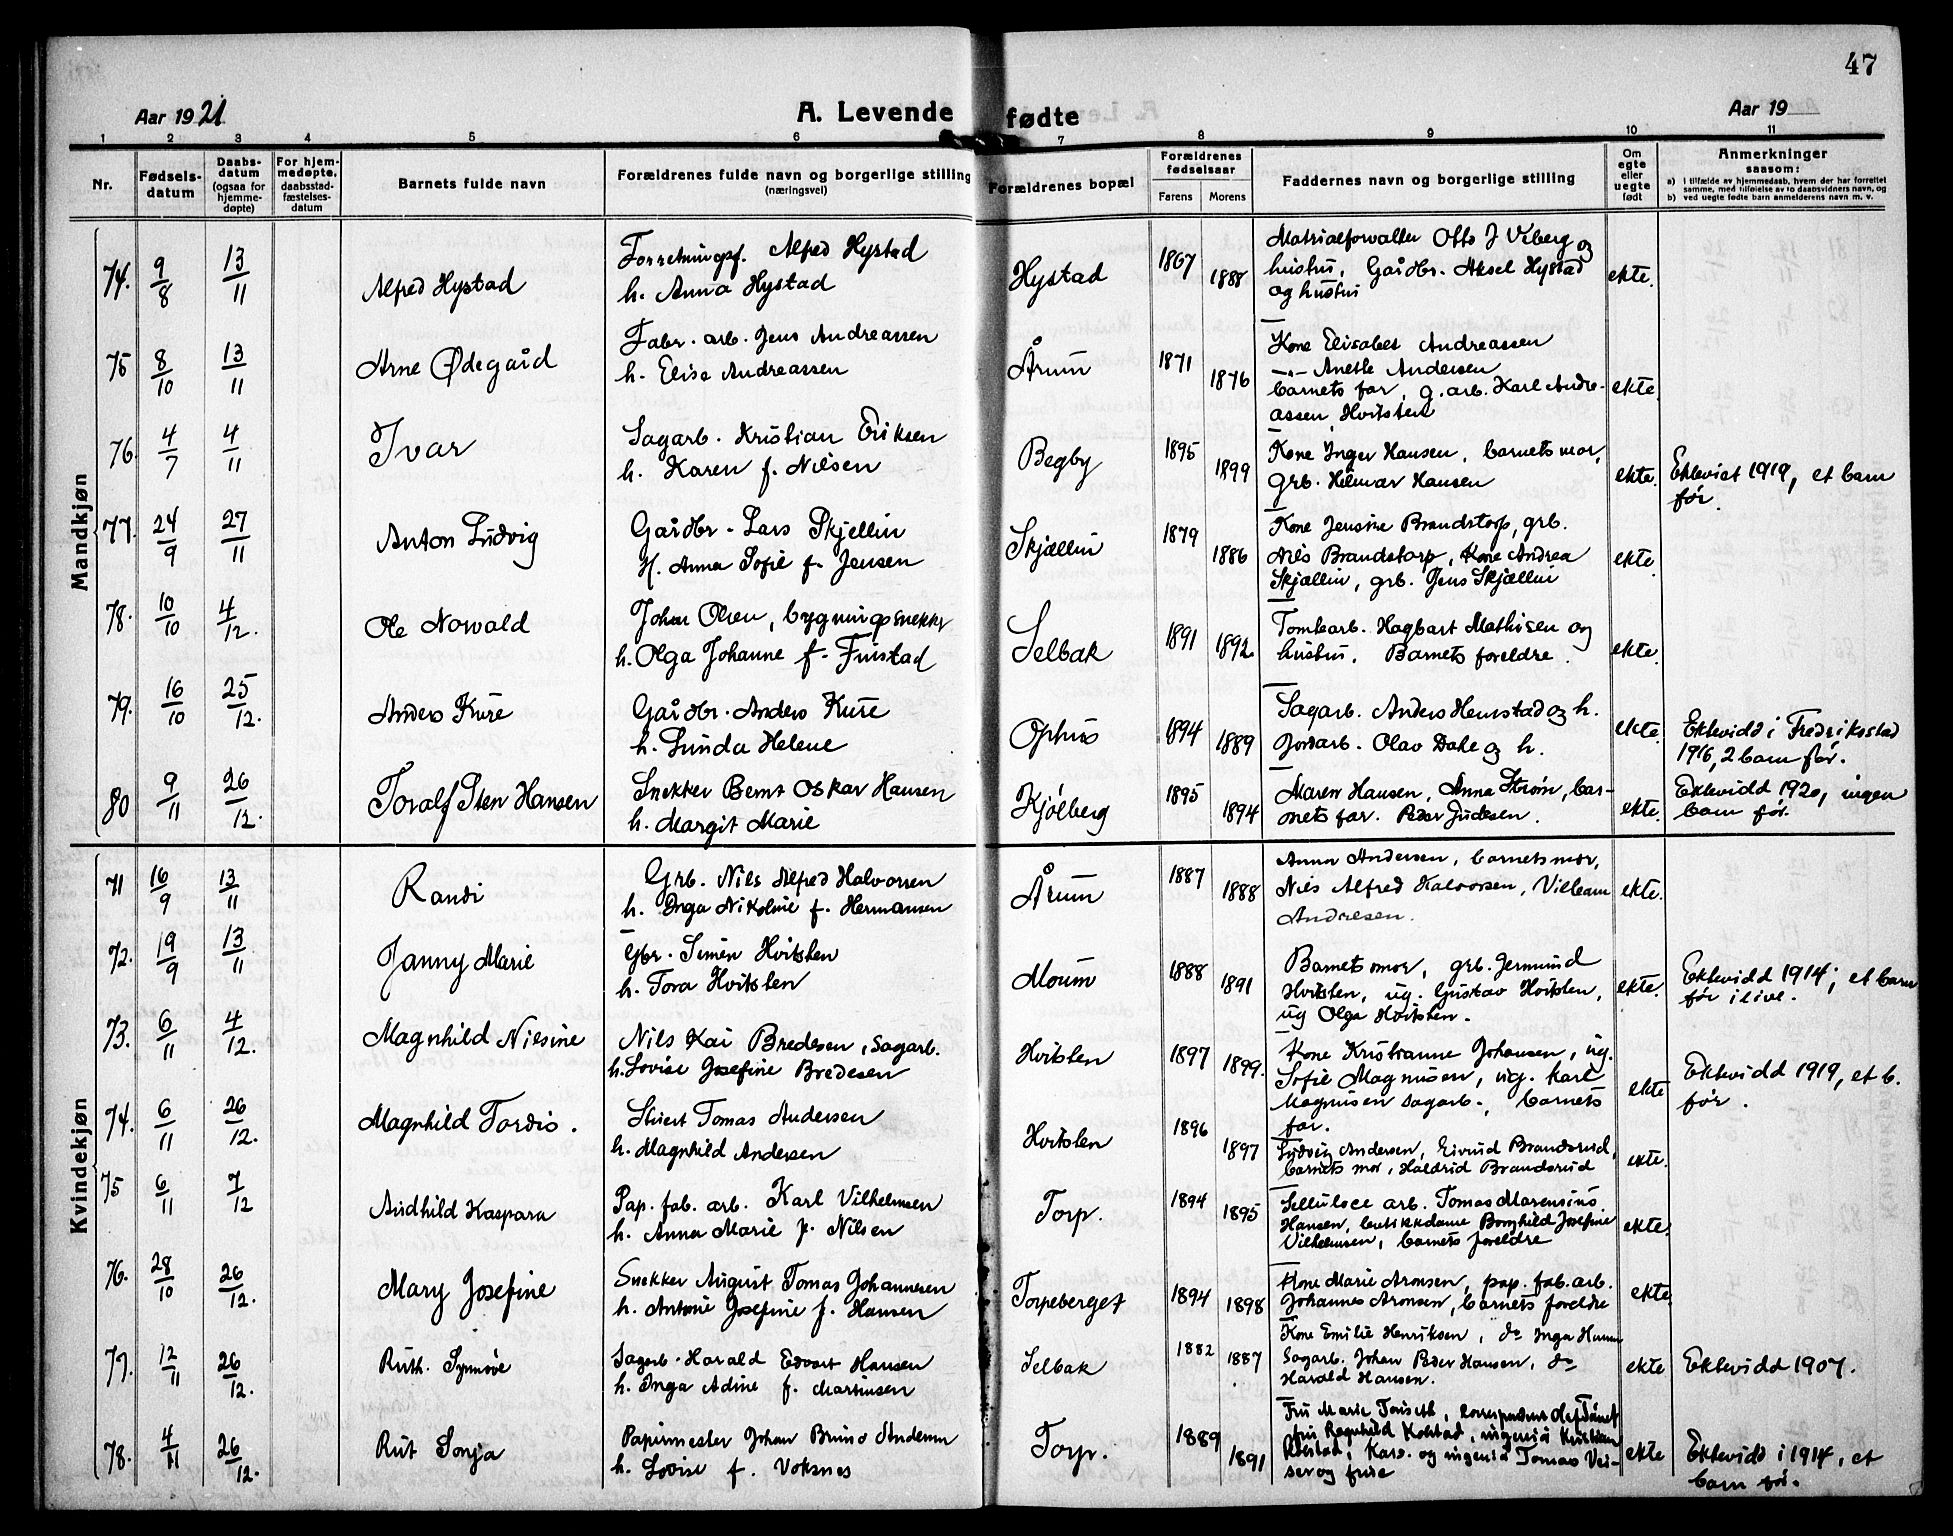 47
Aar 1921
A. Levende fødte
Aar 19
1 2 3 4 5 6 7 8 9 10 11
Nr.
Fødsels-
datum
Daabs-
datum
(ogsaa for
hjemme-
døpte)
For hjem-
medøpte,
daabsstad-
fæstelses-
datum
Barnets fulde navn
Forældrenes fulde navn og borgerlige stilling
(næringsvei)
Forældrenes bopæl
Forældrenes
fødselsaar
Farens Morens
Faddernes navn og borgerlige stilling
Om
egte
eller
uegte
født
Anmerkninger
saasom:
a) i tilfælde av hjemmedaab, hvem der har forrettet
samme, med tilføielse av to daabsvidners navn, og
b) ved uegte fødte barn anmelderens navn m. v.
Mandkjøn
74. 9/8 13/11 Alfred Hystad
Forretningsf. Alfred Hystad
h. Anna Hystad
Hystad 1867 1888
Matrialforvalter Otto J Viberg og
hustru, Gårdbr. Aksel Hystad
og hustru
ekte.
75 8/10 13/11 Arne Ødegård
Fabr. arb. Jens Andreassen
h. Elise Andreassen
Årum 1871 1876
Kone Elisabet Andreassen
–"– Anette Andersen
barnets far, g. arb. Karl Andre-
assen, Hvitsten
ekte.
76. 4/7 4/11 Ivar
Sagarb. Kristian Eriksen
h. Karen f. Nilsen
Begby 1895 1899
Kone Inger Hansen, barnets mor,
grb. Hilmar Hansen
ekte.
Ektevist 1919, et barn
før.
77. 24/9 27/11 Anton Ludvig
Gårdbr. Lars Skjellin
H. Anna Sofie f. Jensen
Skjællin 1879 1886
Kone Jensine Brandstorp, grb.
Nils Brandstorp, Kone Andrea
Skjællin, grb. Jens Skjællin
ekte.
78. 10/10 4/12. Ole Norvald
Johan Olsen, bygningssnekker
h. Olga Johanne f. Finstad
Selbak 1891 1892.
Tomtearb. Hagbart Mathisen og
hustru. Barnets foreldre.
ekte.
79. 16/10 25/12. Anders Kure
Gårdbr. Anders Kure
h. Lunda Helene
Ophus 1894 1889
Sagarb. Anders Henstad og h.
Jordarb. Olav Dahe og h.
ekte.
Ektevidd i Fredriksstad
1916, 2 barn før.
80 9/11 26/12. Toralf Sten Hansen
Snekker Bernt Oskar Hansen
h. Margit Marie
Kjølberg 1895 1894
Maren Hansen, Anna Strøm, bar-
nets far. Peder Judesen.
ekte.
Ektevidd 1920, ingen
barn før.
Kvindekjøn
71 16/9 13/11 Randi
Grb. Nils Alfred Halvorsen
h. Inga Nikoline f. Hermansen
Årum 1887 1888
Anna Andersen, barnets mor,
Nils Alfred Halvorsen, Villeam
Andresen.
ekte.
72. 19/9 13/11 Janny Marie
Gbr. Simen Hvitsten
h. Tora Hvitsten
Moum 1888 1891
Barnets mor, grb. Jermund
Hvitsten, ug. Gustav Hvitsten,
ug Olga Hvitsten.
ekte.
Ektevidd 1914; et barn
før i live.
73. 6/11 4/12. Magnhild Nilsine
Nils Kai Bredesen, sagarb.
h. Lovise Josefine Bredesen
Hvitsten 1897 1899.
Kone Kristianne Johansen, ug.
Sofie Magnusen, ug. Karl
Magnusen sagarb., barnets
far.
ekte
Ektevidd 1919, et b.
før.
74. 6/11 26/12. Magnhild Tordis.
Stuert Tomas Andersen
h. Magnhild Andersen
Hvitsten 1896 1897
Ludvig Andersen, Eivind Brandsrud,
barnets mor, Haldrid Brandsrud
ekte.
75 6/11 7/12 Audhild Kaspara
Pap. fab. arb. Karl Vilhelmsen
h. Anna Marie f. Nilsen
Torp. 1894 1895
Sellulose arb. Tomas Marensius
Hansen, butikkdame Borghild Josefine
Vilhelmsen, barnets foreldre
ekte.
76. 28/10 26/12. Mary Josefine
Snekker August Tomas Johannesen
h. Antonie Josefine f. Hansen
Torpeberget 1894 1898
Kone Marie Aronsen, pap. fab. arb.
Johannes Aronsen, barnets foreldre
ekte.
77. 12/11 26/12. Ruth Synnøve
Sagarb. Harald Edvart Hansen
h. Inga Adine f. Martinsen
Selbak 1882 1887
Kone Emilie Henriksen, do Inga Hansen
Sagarb. Johan Peder Hansen, do
Harald Hansen.
ekte
Ektevidd 1907.
78. 4/11 26/12. Rut Sonja
Papirmester Johan Bruno Andersen
h. Lovise f. Voksnes
Torp. 1889 1891
Fru Marie
fru Ragnhild Kolstad, ingeniør Kristian
Kolstad, og ingeniør Tomas
og frue
ekte
Ektevidd i 1914, et
barn før.